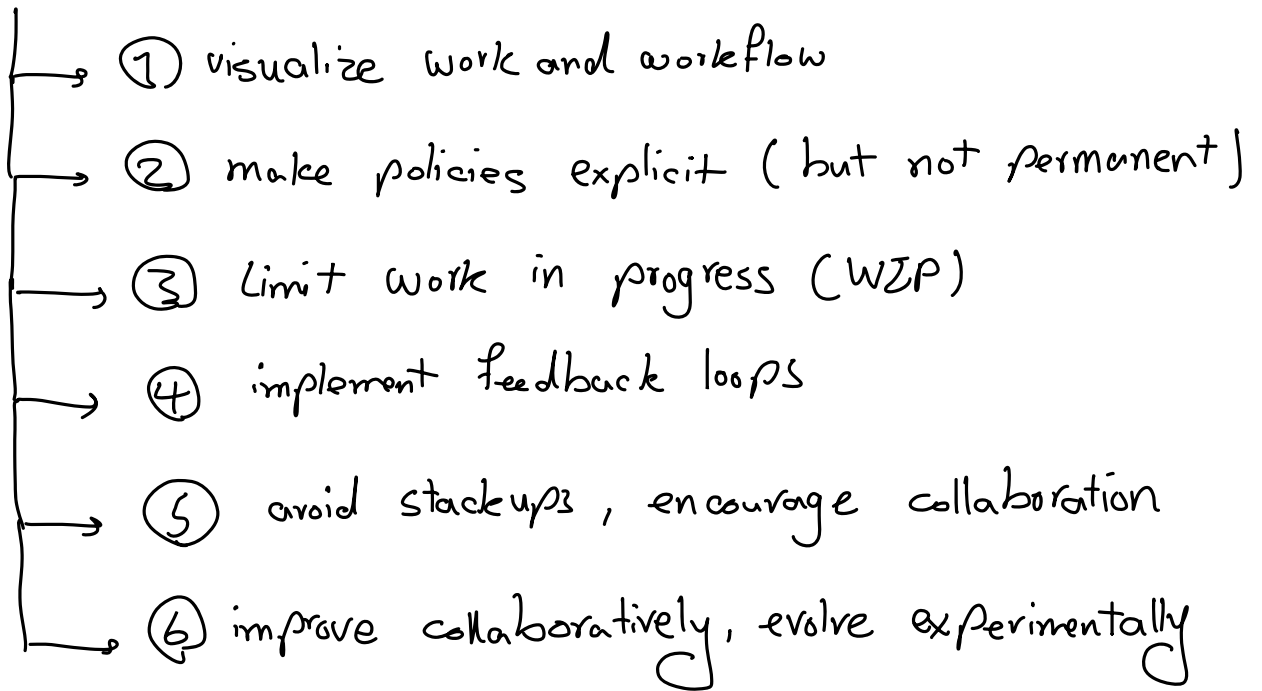 ① visualize work and workflow
② make policies explicit (but not permanent)
③ Limit work in progress (WIP)
④ implement feedback loops
⑤ avoid stackups, encourage collaboration
⑥ improve collaboratively, evolve experimentally